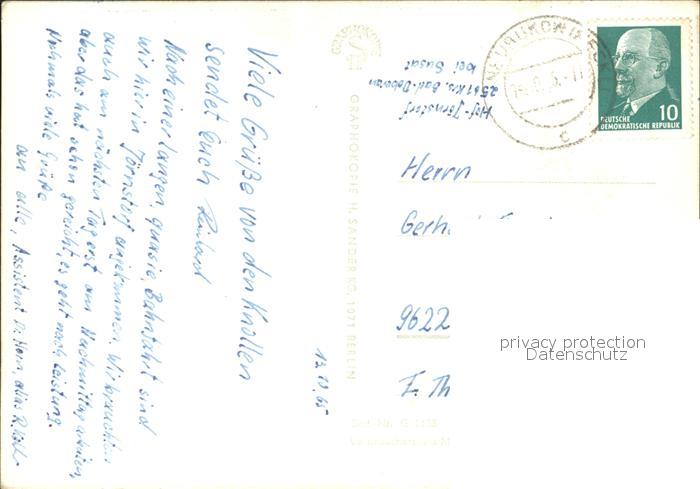 13.10.65
Viele Grüße von den Knollen
sendet Euch Reinhard
Nach einer langen, Bahnfahrt sind
wir hier in Jörnstorf angekommen. Wir brauchten
auch am nächsten Tag erst am Nachmittag arbeiten,
aber das hat schon gereicht, es geht nach Leistung.
Nochmals viele Grüße
an alle, Assistent Dr. Horn, alias R.
GRAPHOKOPIE H. SANDER KG, 1071 BERLIN
Hof-Jörnstorf
2561 Krs. Bad-Doberan
bei
NEUBUKOW
c
10
DEUTSCHE
DEMOKRATISCHE REPUBLIK
Herrn
Gerh.
9622
F. Th
privacy protection
Datenschutz
Best.-Nr. G
Verbraucherpreis M